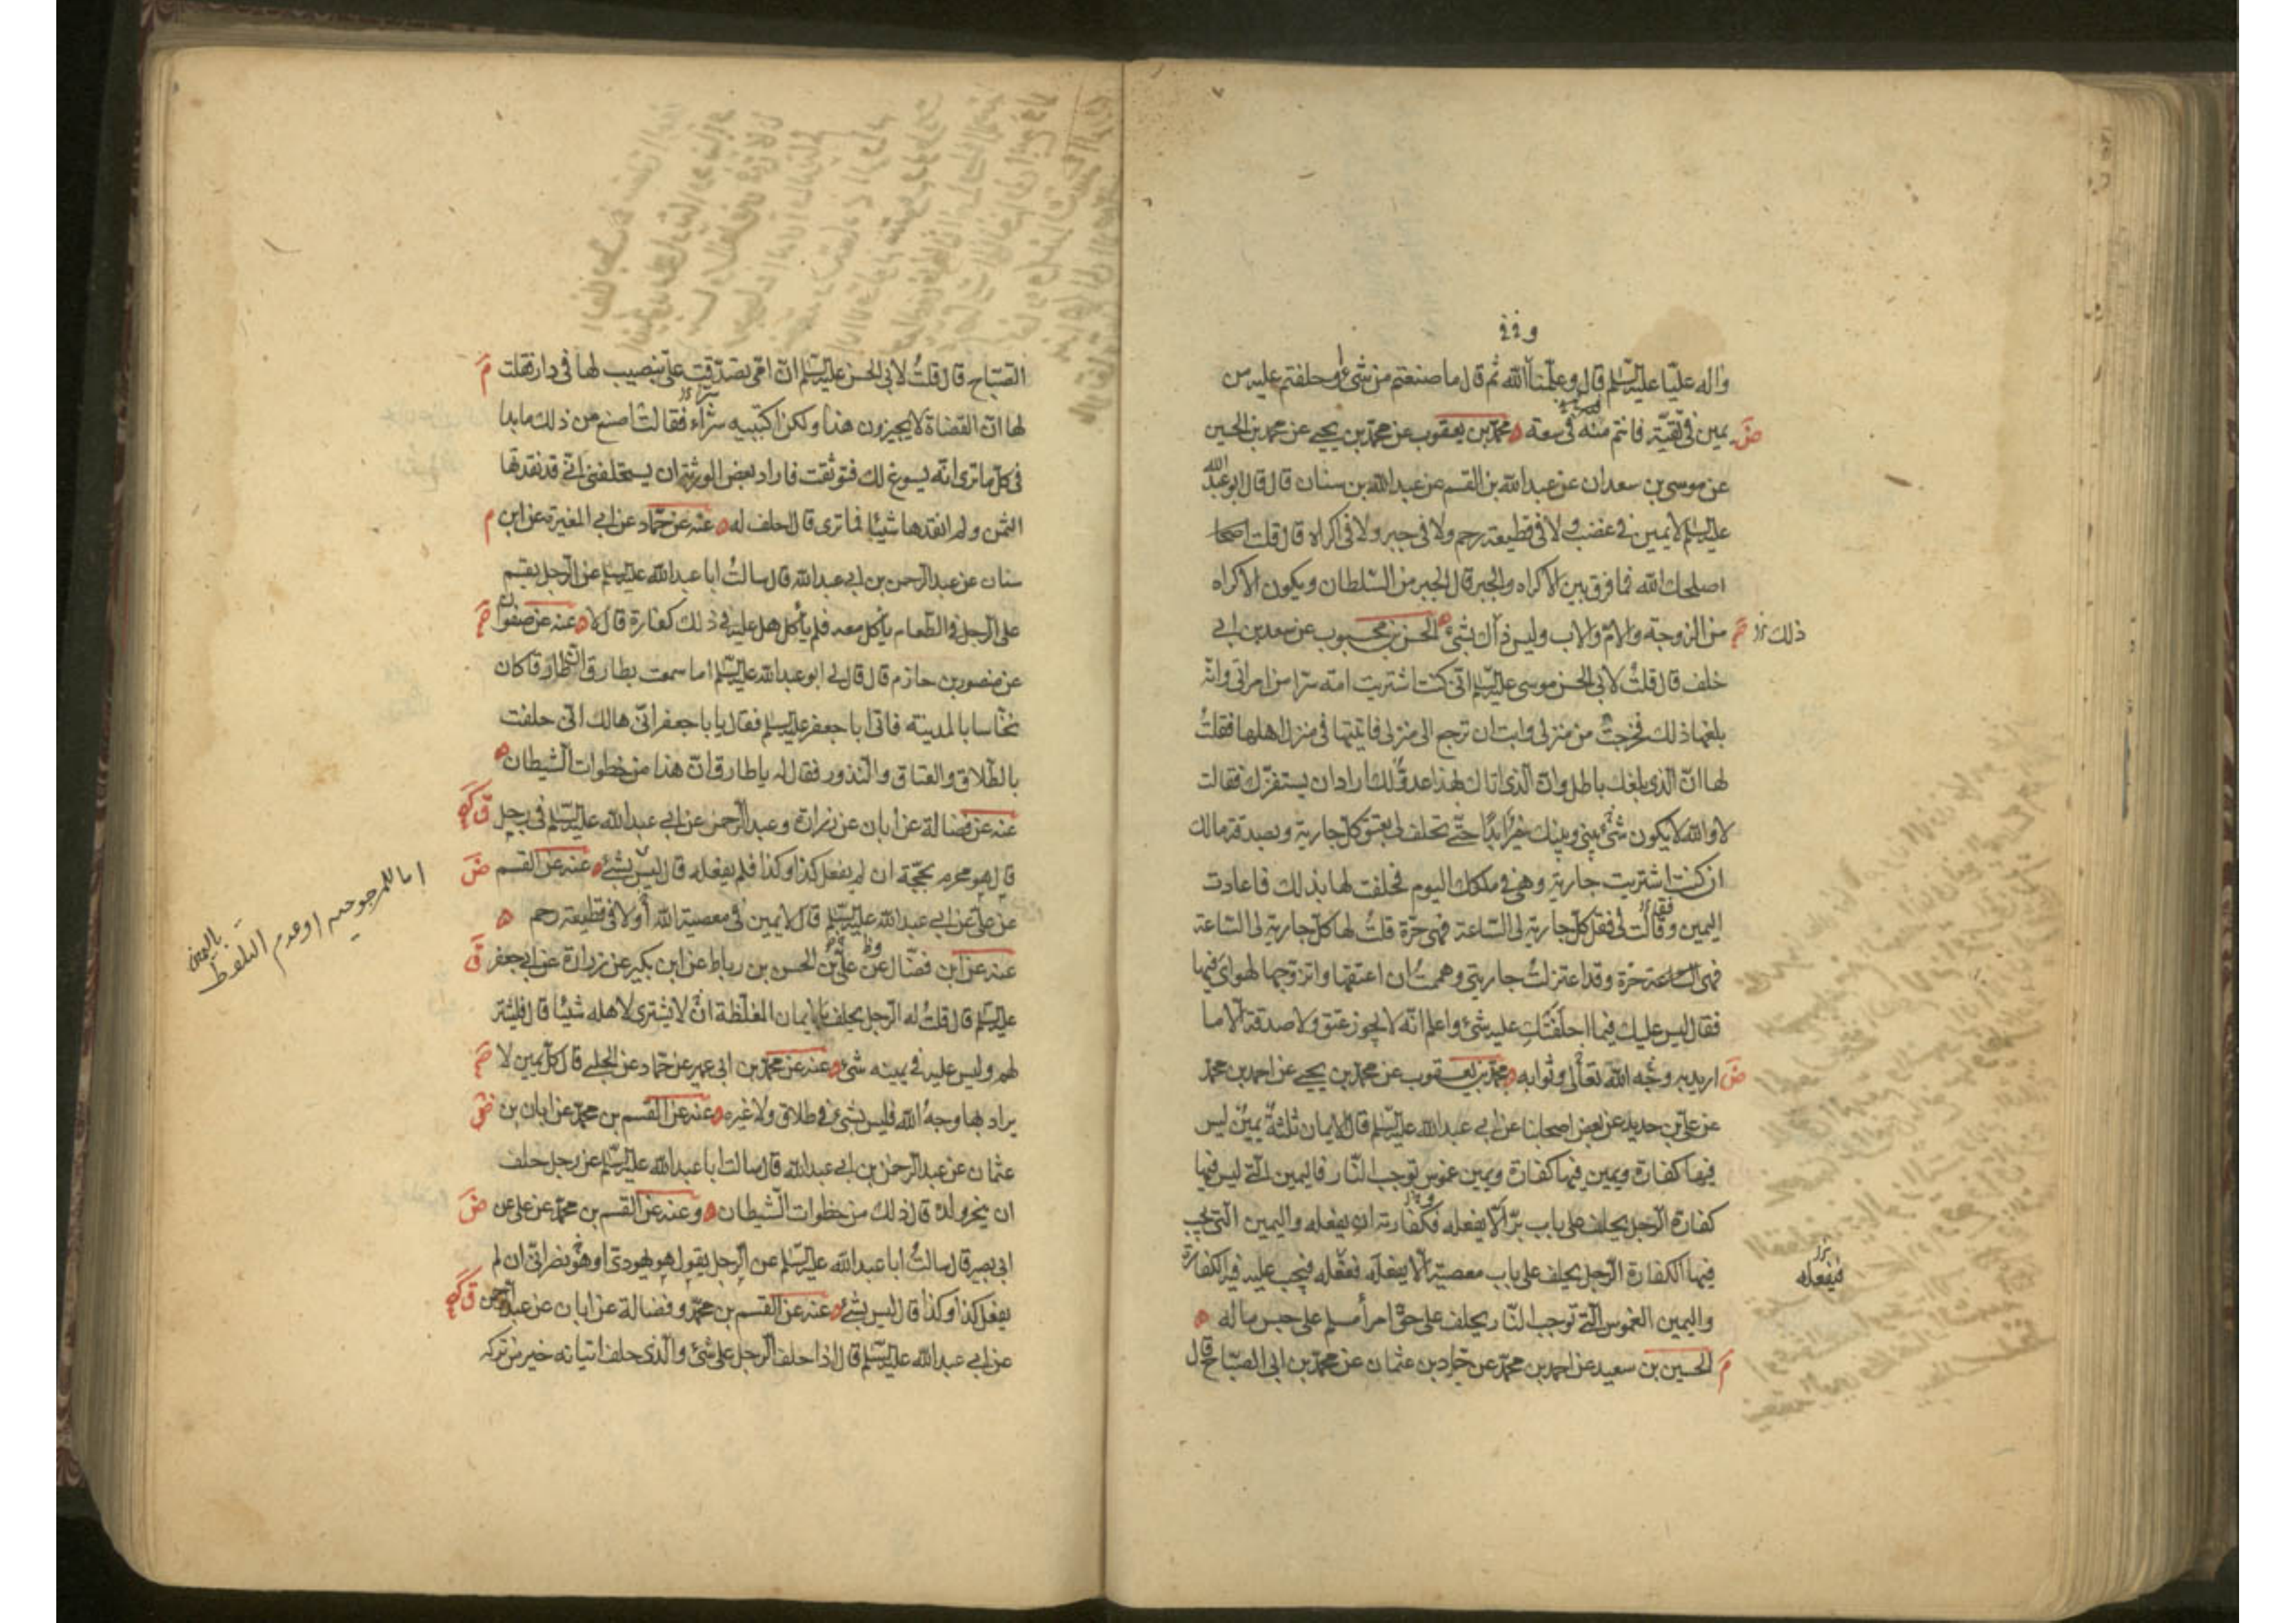 واله عليا عليه السلم قال وعلمنا الله ثم قال ما صنعتم من شىء او حلفتم عليه من
يمين فى تقية فانتم منه فى سعة محمد بن يعقوب عن محمد بن يحيى عن محمد بن الحسين
عن موسى بن سعدان عن عبد الله بن القسم عن عبد الله بن سنان قال قال ابو عبد الله
عليه السلم لا يمين فى غضب ولا فى قطيعة رحم ولا فى جبر ولا فى اكراه قال قلت
اصلحك الله فما فرق بين الاكراه والجبر قال الجبر من السلطان ويكون الاكراه
من الزوجة والام والاب وليس ذلك بشىء الحسن بن محبوب عن سعد بن ابى
ذلك
خلف قال قلت لابى الحسن موسى عليه السلم انى كنت اشتريت امة سرا من امراتى وانه
بلغها ذلك فخرجت من منزلى وابت ان ترجع الى منزلى فاتيتها فى منزل اهلها فقلت
لها ان الذى بلغك باطل وان الذى اتاك بهذا عدو لك اراد ان يستفزك فقالت
لا والله لا يكون شىء بينى وبينك خير ابدا حتى تحلف لى بعتق كل جارية وبصدقة مالك
ان كنت اشتريت جارية وهى فى ملكك اليوم فحلفت لها بذلك فاعادت
اليمين وقالت لى فقل كل جارية لى الساعة فهى حرة قلت لها كل جارية لى الساعة
فهى حرة وقد اعتزلت جاريتى وهممت ان اعتقها واتزوجها لهواى فيها
فقال ليس عليك فيما احلفتك عليه شىء واعلم انه لا يجوز عتق ولا صدقة الا ما
اريد به وجه الله تعالى وثوابه محمد بن يعقوب عن محمد بن يحيى عن احمد بن محمد
عن على بن حديد عن بعض اصحابنا عن ابى عبد الله عليه السلم قال الايمان ثلثة يمين ليس
فيها كفارة ويمين فيها كفارة ويمين غموس توجب النار فاليمين التى ليس فيها
كفارة الرجل يحلف على باب بر الا يفعله فكفارته ان يفعله واليمين التى تجب
فيها الكفارة الرجل يحلف على باب معصية الا يفعله ففعله فيجب عليه فيه الكفارة
فيفعله
واليمين الغموس التى توجب النار يحلف على حق امرأ مسلم على حبس ماله
الحسين بن سعيد عن احمد بن محمد عن حماد بن عثمان عن محمد بن ابى الصباح قال
الصباح قال قلت لابى الحسن عليه السلم ان امى تصدقت على بنصيب لها فى دار فقلت
لها ان القضاة لا يجيزون هذا ولكن اكتبيه شراء فقالت اصنع من ذلك ما بدا
فى كل ما ترى انه يسوغ لك فتوثقت فاراد بعض الورثة ان يستحلفنى انى قد نقدتها
الثمن ولم انقدها شيئا فما ترى قال احلف له عنه عن حماد عن ابى المغيرة عن ابن
سنان عن عبد الرحمن بن ابى عبد الله قال سالت ابا عبد الله عليه السلم عن الرجل يقسم
على الرجل فى الطعام ياكل معه فلم ياكل هل عليه فى ذلك كفارة قال لا عنه عن صفوان
عن منصور بن حازم قال قال لى ابو عبد الله عليه السلم اما سمعت بطارق ان طارقا كان
نخاسا بالمدينة فاتى ابا جعفر عليه السلم فقال يا با جعفر انى هالك انى حلفت
بالطلاق والعتاق والنذور فقال له يا طارق ان هذا من خطوات الشيطان
عنه عن فضالة عن ابان عن زرارة وعبد الرحمن عن ابى عبد الله عليه السلم فى رجل
قال هو محرم بحجة ان لم يفعل كذا وكذا فلم يفعله قال ليس بشىء عنه عن القسم
عن على عن ابى عبد الله عليه السلم قال لا يمين فى معصية الله او لا فى قطيعة رحم
عنه عن ابن فضال عن على بن الحسن بن رباط عن ابن بكير عن زرارة عن ابى جعفر
عليه السلم قال قلت له الرجل يحلف بالايمان المغلظة ان لا يشترى لاهله شيئا قال فليشتر
لهم وليس عليه فى يمينه شىء عنه عن محمد بن ابى عمير عن حماد عن الحلبى قال كل يمين لا
يراد بها وجه الله فليس بشىء فى طلاق ولا غيره عنه عن القسم بن محمد عن ابان بن
عثمان عن عبد الرحمن بن ابى عبد الله قال سالت ابا عبد الله عليه السلم عن رجل حلف
ان ينحر ولده قال ذلك من خطوات الشيطان وعنه عن القسم بن محمد عن على عن
ابى بصير قال سالت ابا عبد الله عليه السلم عن الرجل يقول هو يهودى او هو نصرانى ان لم
يفعل كذا وكذا قال ليس بشىء عنه عن القسم بن محمد وفضالة عن ابان عن عبد الرحمن
عن ابى عبد الله عليه السلم قال اذا حلف الرجل على شىء والذى حلف اتيانه خير من تركه
اما للمرجوحية او عدم التلفظ
باليمين